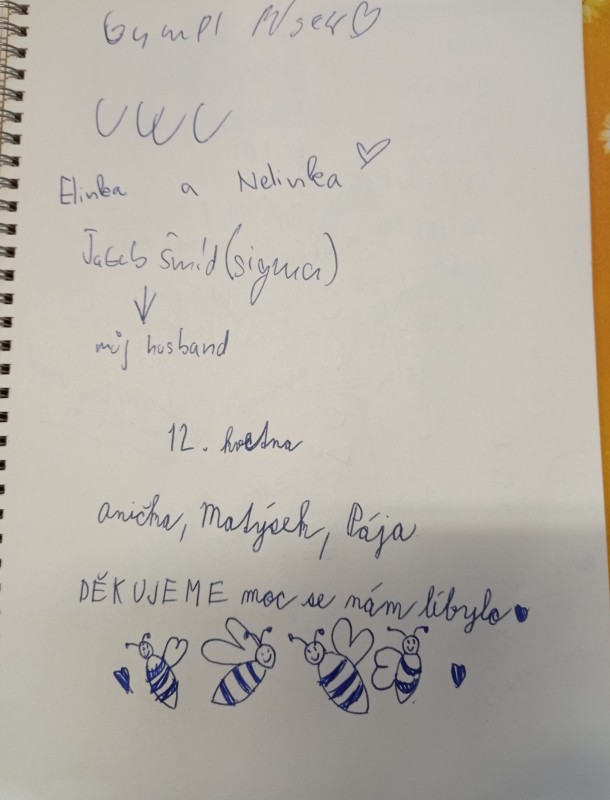 Gympl
UWU
Elinka a Nelinka
Šmíd (sigma)
můj husband
12. května
anička, Matýsek, Pája
DĚKUJEME moc se nám líbylo